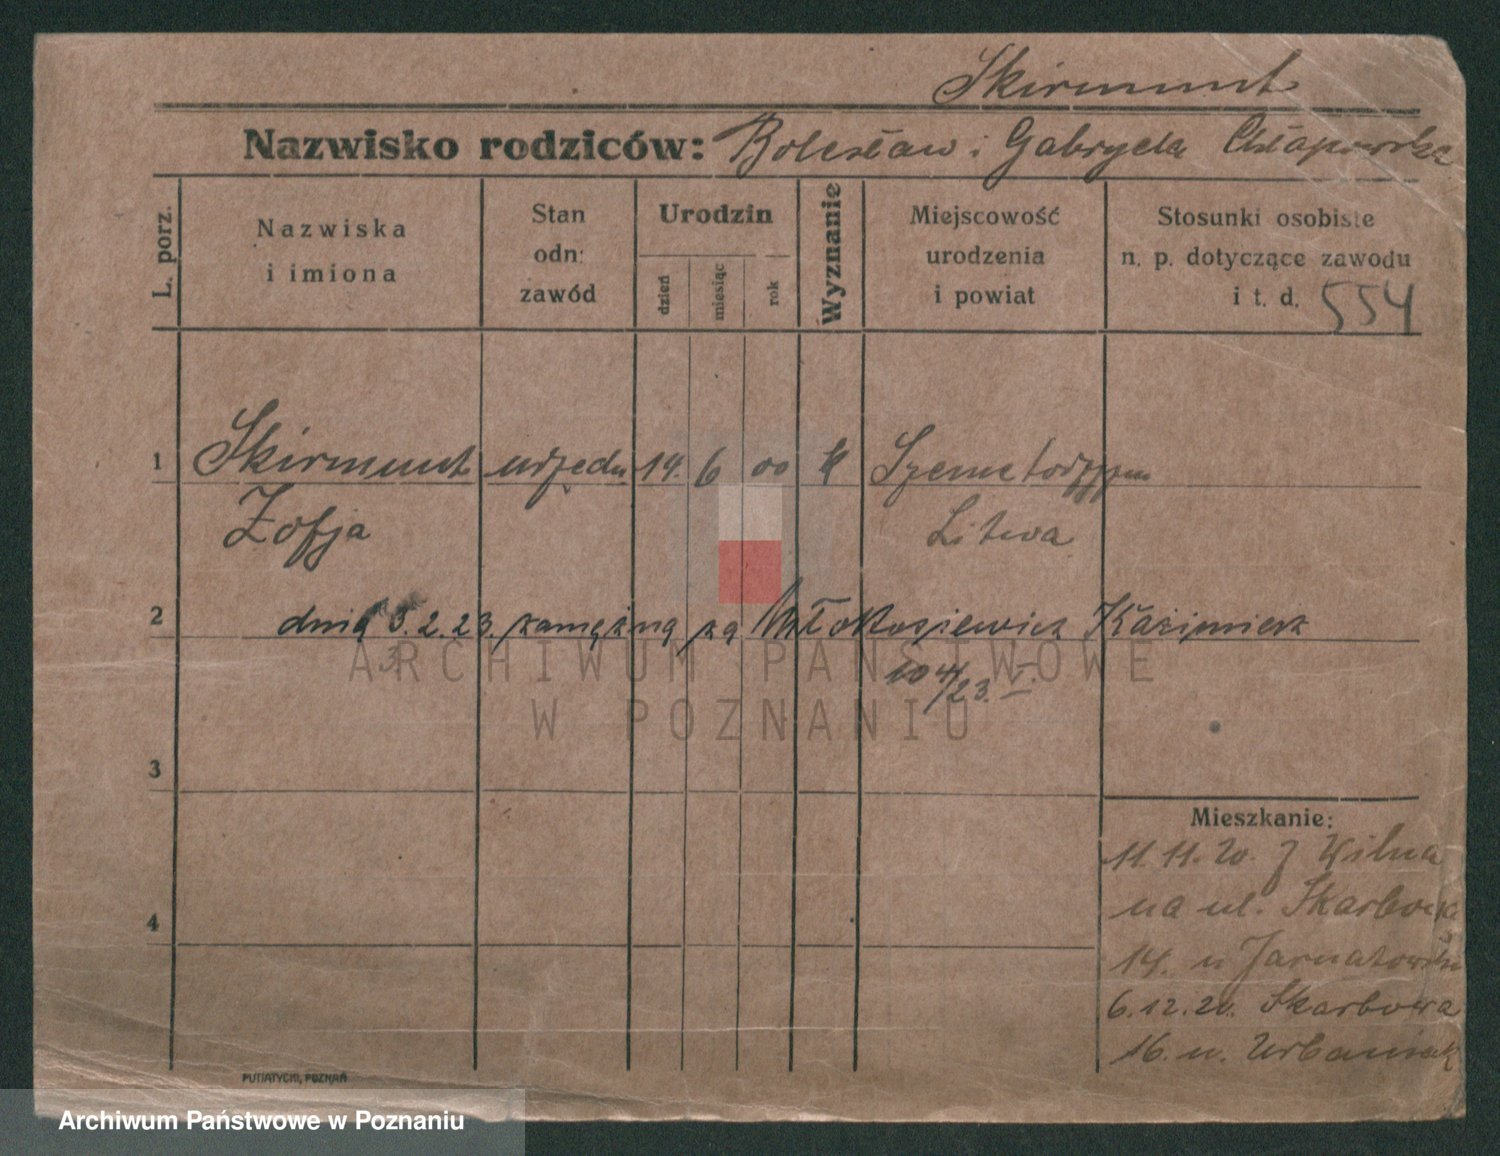 Skirmunt
Nazwisko rodziców: Bolesław i Gabryela Chłapowska
L. porz.
Nazwiska i imiona
Stan odn: zawód
Urodzin
dzień
miesiąc
rok
Wyznanie
Miejscowość urodzenia i powiat
Stosunki osobiste n. p. dotyczące zawodu i t. d. 554
1 Skirmunt 14. 6 00 k
Zofja Litwa
2 dnia 3.2.23. zamężna za Młokosiewicz Kazimierz
3
ARCHIWUM PAŃSTWOWE
W POZNANIU
3
4
Mieszkanie:
11.11.20. z Wilna
na ul. Skarbowa
14. u Jarnatowski
6.12.20. Skarbowa
16. u. Urbaniak
PUTIATYCKI, POZNAŃ
Archiwum Państwowe w Poznaniu